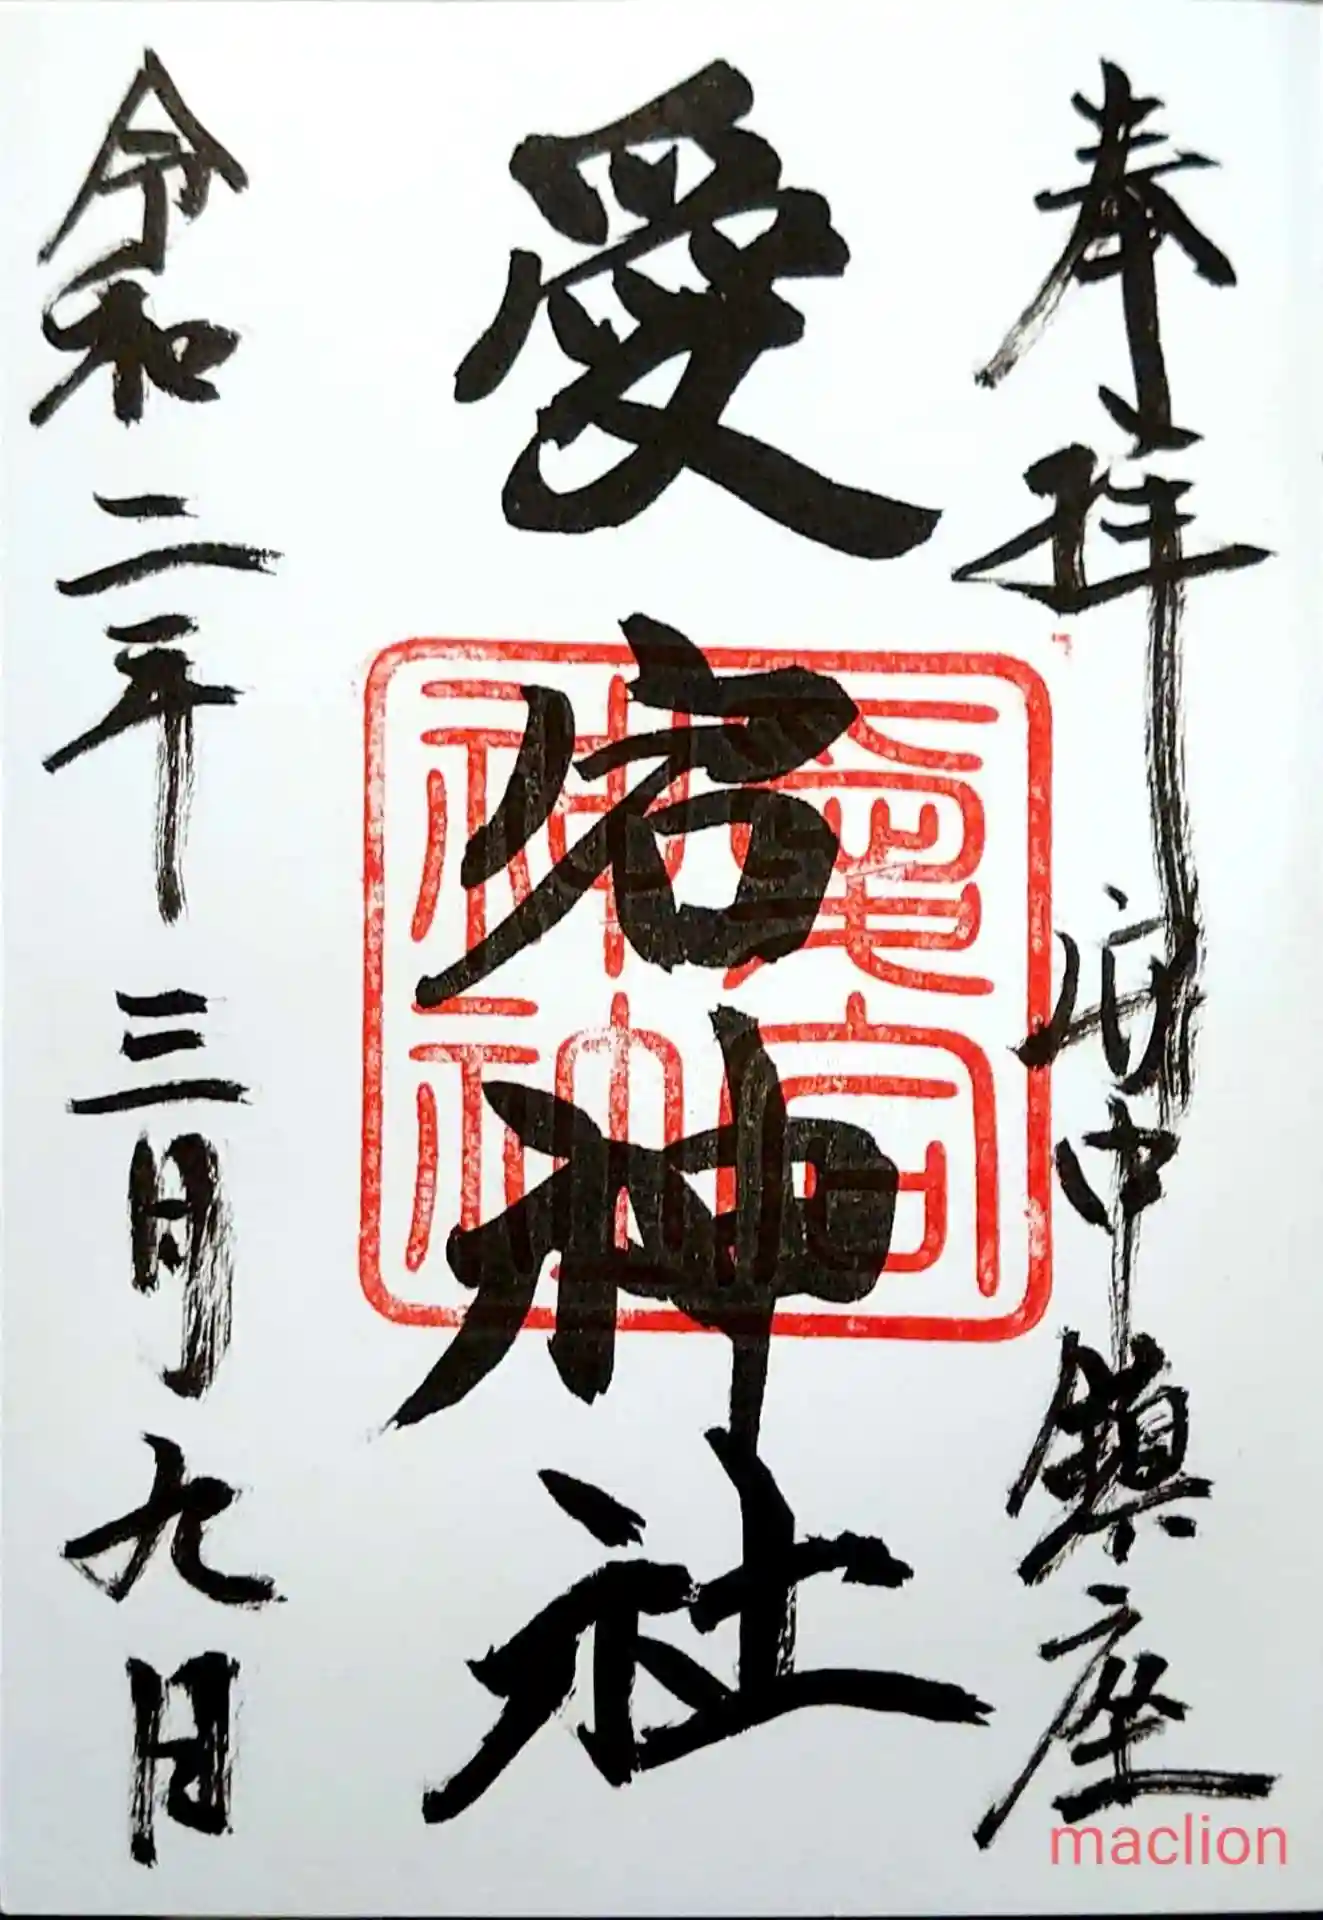 奉拝 府中鎮座
愛宕神社
愛宕
神社
令和二年三月九日
maclion